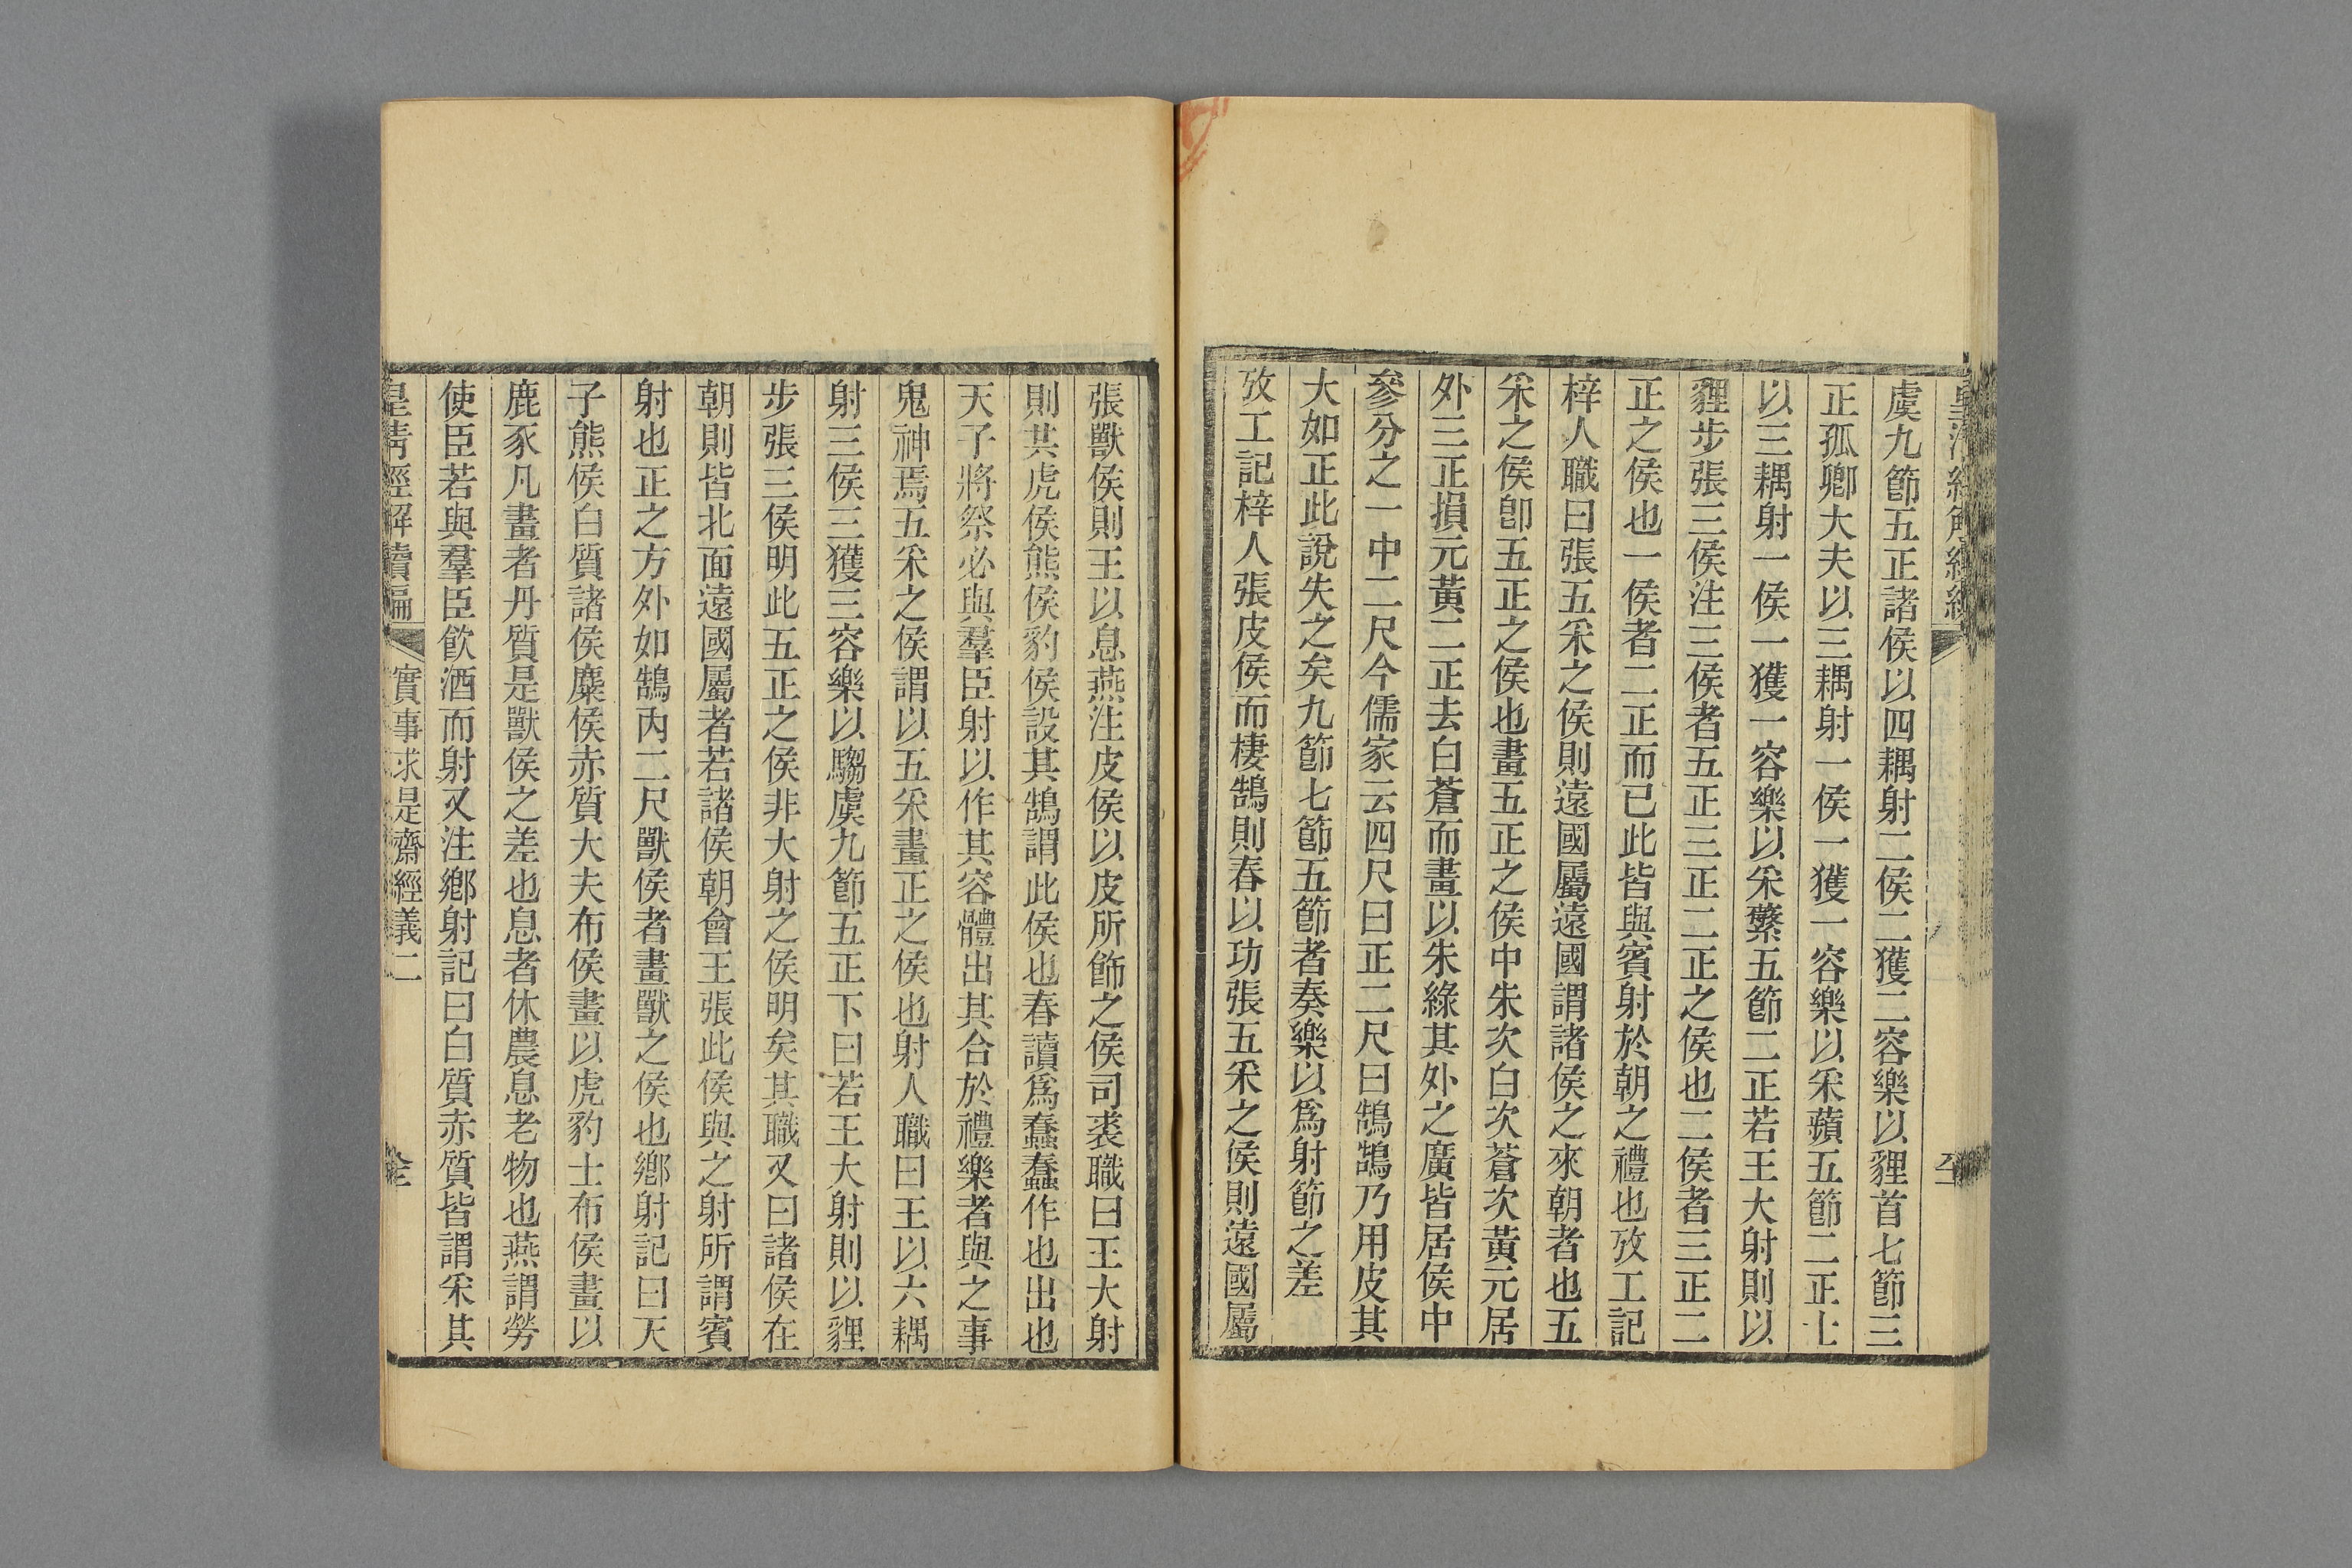 虞九節五正諸侯以四耦射二侯二獲二容樂以貍首七節三
正孤卿大夫以三耦射一侯一獲一容樂以采蘋五節二正士
以三耦射一侯一獲一容樂以采蘩五節二正若王大射則以
貍步張三侯注三侯者五正三正二正之侯也二侯者三正二
正之侯也一侯者二正而已此皆與賓射於朝之禮也攷工記
梓人職曰張五采之侯則遠國屬遠國謂諸侯之來朝者也五
采之侯卽五正之侯也畫五正之侯中朱次白次蒼次黃元居
外三正損元黃二正去白蒼而畫以朱綠其外之廣皆居侯中
參分之一中二尺今儒家云四尺曰正二尺曰鵠鵠乃用皮其
大如正此說失之矣九節七節五節者奏樂以爲射節之差
攷工記梓人張皮侯而棲鵠則春以功張五采之侯則遠國屬
張獸侯則王以息燕注皮侯以皮所飾之侯司裘職曰王大射
則共虎侯熊侯豹侯設其鵠謂此侯也春讀爲蠢蠢作也出也
天子將祭必與羣臣射以作其容體出其合於禮樂者與之事
鬼神焉五采之侯謂以五采畫正之侯也射人職曰王以六耦
射三侯三獲三容樂以騶虞九節五正下曰若王大射則以貍
步張三侯明此五正之侯非大射之侯明矣其職又曰諸侯在
朝則皆北面遠國屬者若諸侯朝會王張此侯與之射所謂賓
射也正之方外如鵠內二尺獸侯者畫獸之侯也鄉射記曰天
子熊侯白質諸侯麋侯赤質大夫布侯畫以虎豹士布侯畫以
鹿豕凡畫者丹質是獸侯之差也息者休農息老物也燕謂勞
使臣若與羣臣飮酒而射又注鄉射記曰白質赤質皆謂采其
皇淸經解續編 實事求是齋經義二